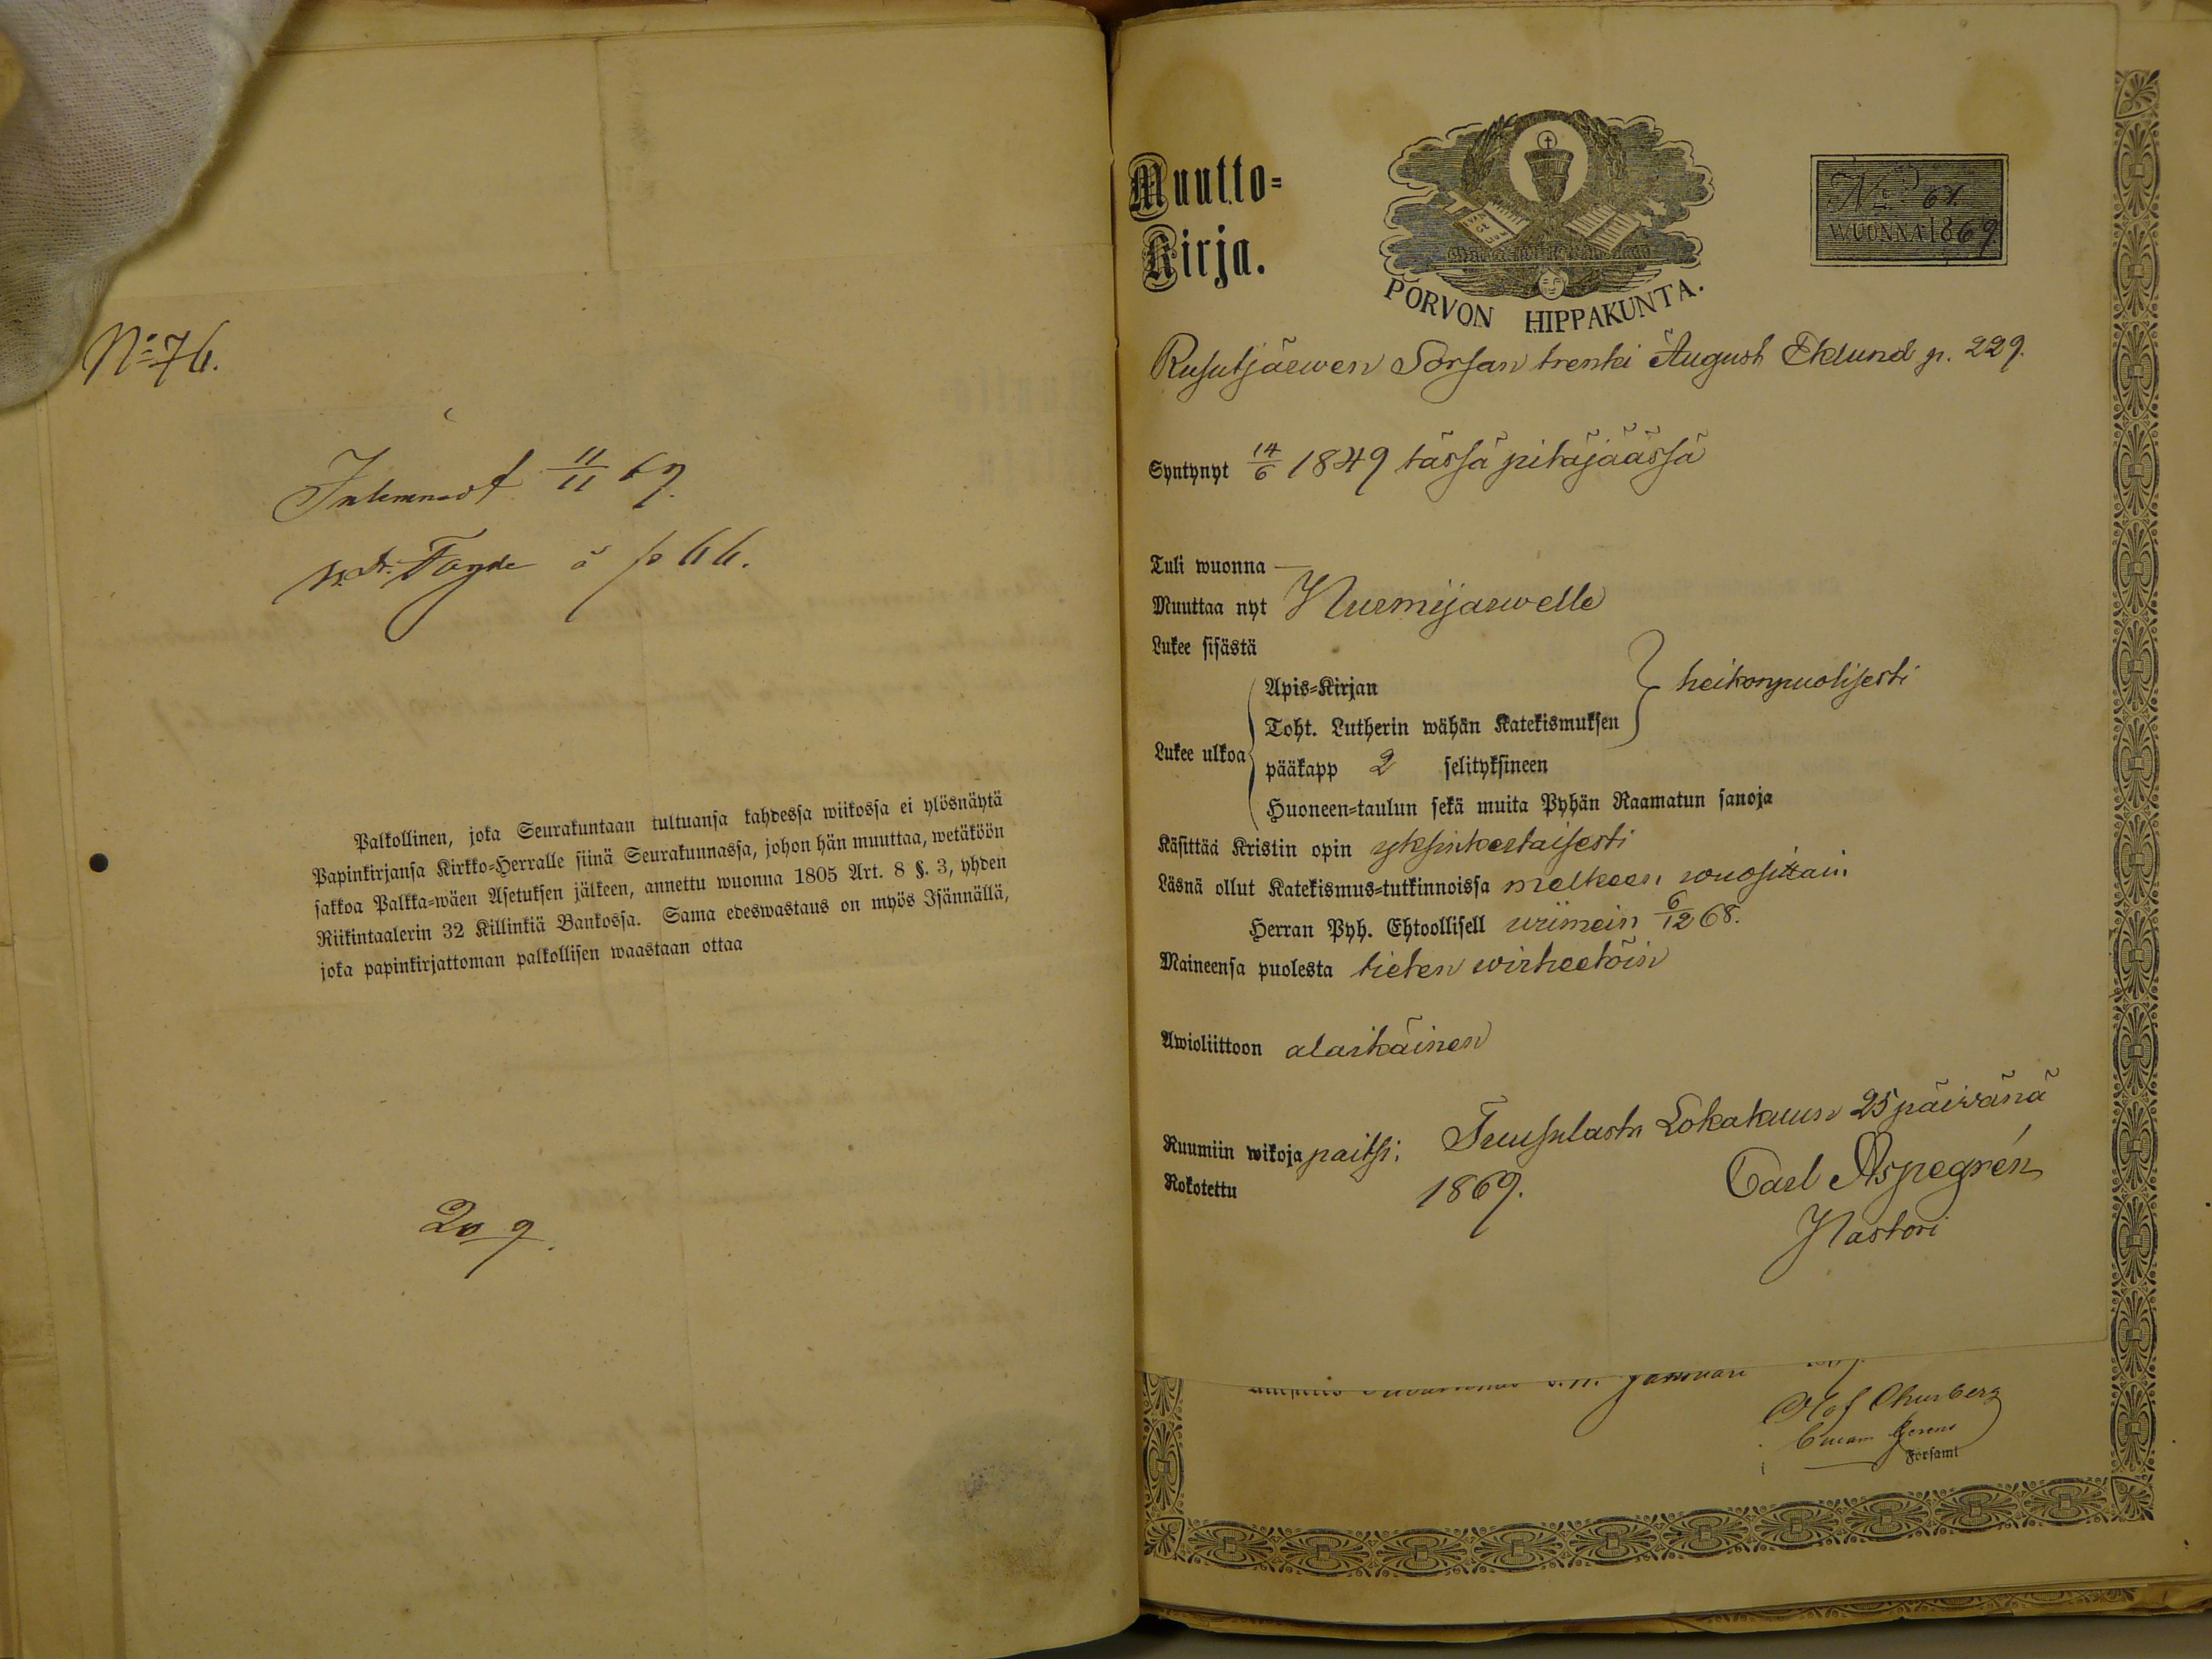 No 76.
Inlemnadt 11/11 69.
å p 66.
Palkollinen, joka Seurakuntaan tultuansa kahdessa wiikossa ei ylösnäytä
Papinkirjansa Kirkko=Herralle siinä Seurakunnassa, johon hän muuttaa, wetäköön
sakkoa Palkka=wäen Asetuksen jälkeen, annettu wuonna 1805 Art. 8 §. 3, yhden
Riikintaalerin 32 Killinkiä Bankossa. Sama edeswastaus on myös Isännällä,
joka papinkirjattoman palkollisen waastaan ottaa
209.
Muutto=
Kirja.
PORVON HIPPAKUNTA.
No 61.
WUONNA 1869.
Rusutjärwen Sorsan trenki August Eklund p. 229.
Syntynyt 14/6 1849 tässä pitäjäässä
Tuli wuonna —
Muuttaa nyt Nurmijärwelle
Lukee sisästä
Apis=Kirjan
Toht. Lutherin wähän Katekismuksen
heikonpuolisesti
Lukee ulkoa
pääkapp 2 selityksineen
Huoneen=taulun sekä muita Pyhän Raamatun sanoja
Käsittää Kristin opin yksinkertaisesti
Läsnä ollut Katekismus=tutkinnoissa melkeen wuosittain
Herran Pyh. Ehtoollisell wiimein 6/12 68.
Maineensa puolesta tieten wirheetöin
Awioliittoon alaikäinen
Ruumiin wikoja paitsi.
Tuusulasta Lokakuun 25 päivänä
1869.
Rokotettu
Carl Aspegrén
Pastori
Januari
Olof Churberg
i
Församl